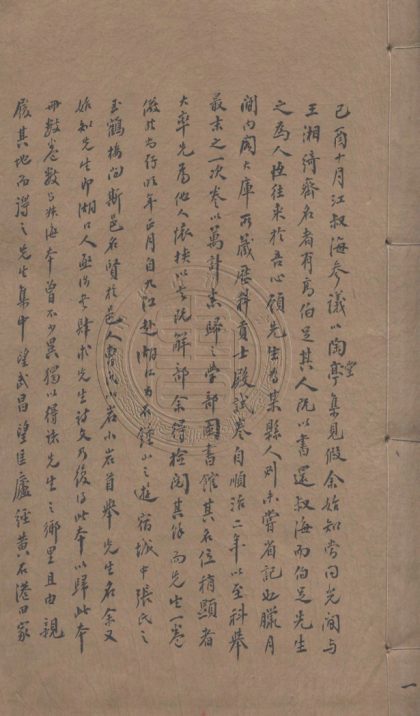 己酉十月江叔海參議以陶堂集見假余始知當同光間與
王湘綺齊名者有高伯足其人既以書還叔海而伯足先生
之為人恆往來於吾心顧先生為某縣人則未嘗省記也臘月
間內閣大庫所藏歷科貢士殿試卷自順治二年以至科舉
最末之一次卷以萬計索歸之學部圖書館其名位稍顯者
大率先為他人懷挾以去既解部余得檢閱其餘而先生一卷
正月自九江赴湖口為石鐘山之遊宿城中張氏之
玉鶴橋問斯邑名賢於邑人曹小岩小岩首舉先生名余又
始知先生即湖口人亟從書肆求先生詩文乃復得此本以歸此本
冊數卷數與叔海本曾不少異獨以得諸先生之鄉里且由親
履其地而得之先生集中望武昌望匡廬經黃石港田家
一